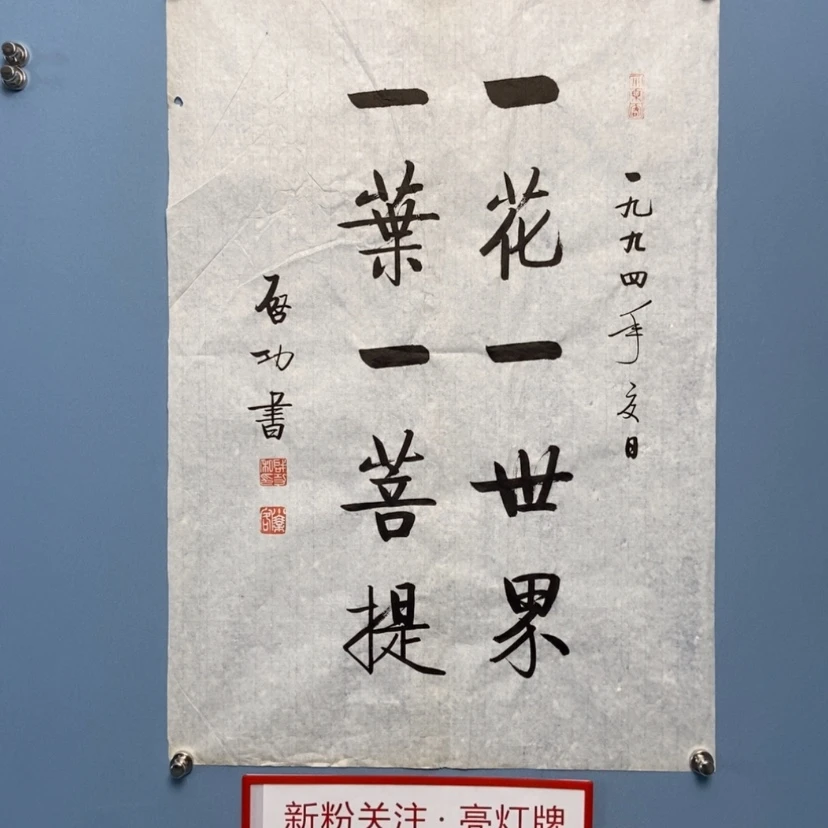 一九九四年夏日
一花一世界
一葉一菩提
启功書
新粉关注·亮灯牌